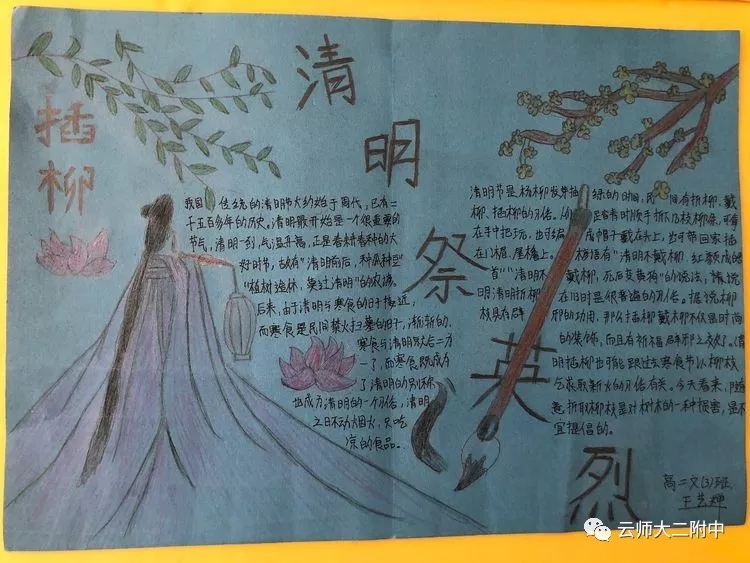 清明
祭英烈
插柳
我国传统的清明节大约始于周代,已有二
千五百多年的历史。清明最开始是一个很重要的
节气,清明一到,气温升高,正是春耕春种的大
好时节,故有"清明前后,种瓜种豆"
"植树造林,莫过清明"的农谚。
后来,由于清明与寒食的日子接近,
而寒食是民间禁火扫墓的日子,渐渐的,
寒食与清明就合二为
一了,而寒食既成为
了清明的别称
也成为清明的一个习俗,清明
之日不动烟火,只吃
凉的食品。
清明节是杨柳发芽抽绿的时间,民间有折柳、戴
柳、插柳的习俗。人们踏青时顺手折几枝柳条,可拿
在手中把玩,也可编成帽子戴在头上,也可带回家插
在门楣、屋檐上。谚语有"清明不戴柳,红颜成皓
首""清明不戴柳,死后变黄狗"的说法,
明清明折柳在旧时是很普遍的习俗。据说柳
枝具有辟邪的功用,那么插柳戴柳不仅是时尚
的装饰,而且有祈福辟邪之效了。清
明插柳也可能跟过去寒食节以柳枝
乞取新火的习俗有关。今天看来,随
意折取柳枝是对树木的一种损害,是不
宜提倡的。
高二文(3)班
王艺婵
云师大二附中